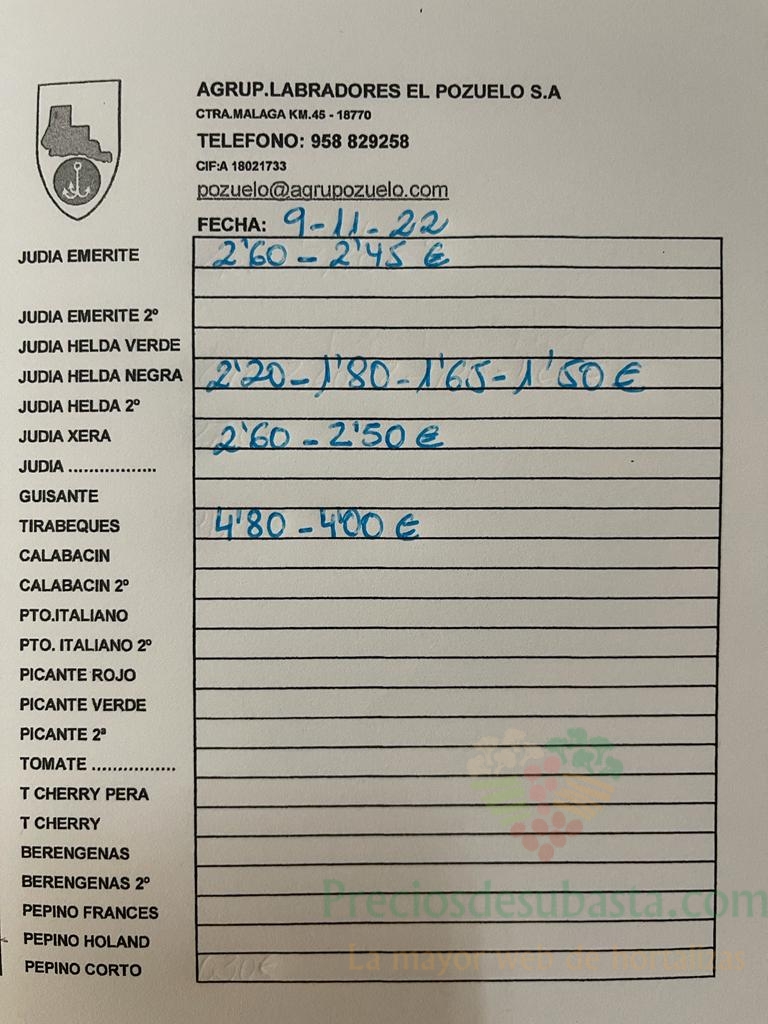 AGRUP.LABRADORES EL POZUELO S.A
CTRA.MALAGA KM.45 - 18770
TELEFONO: 958 829258
CIF:A 18021733
pozuelo@agrupozuelo.com
FECHA: 9-11-22
JUDIA EMERITE 2'60 - 2'45 €
JUDIA EMERITE 2º
JUDIA HELDA VERDE
JUDIA HELDA NEGRA 2'20 - 1'80 - 1'65 - 1'50 €
JUDIA HELDA 2º
JUDIA XERA 2'60 - 2'50 €
JUDIA .................
GUISANTE
TIRABEQUES 4'80 - 4'00 €
CALABACIN
CALABACIN 2º
PTO.ITALIANO
PTO. ITALIANO 2º
PICANTE ROJO
PICANTE VERDE
PICANTE 2ª
TOMATE ................
T CHERRY PERA
T CHERRY
BERENGENAS
BERENGENAS 2º
PEPINO FRANCES
PEPINO HOLAND
PEPINO CORTO
Preciosdesubasta.com
La mayor web de